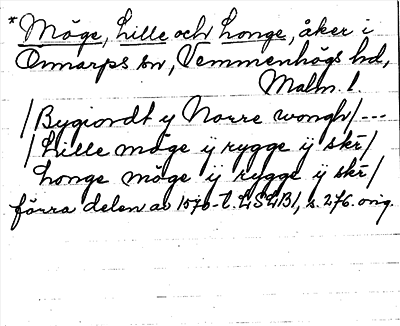 *Möge, Lille och Longe, åker i
Önnarps sn, Vemmenhögs hd,
Malm. l.
/Bygiordt y Norre wongh/---
/Lille möge ÿ rygge ÿ skr/
Longe möge ÿ rygge ÿ skr/
förra delen av 1570-t. LSLB1, s. 276. orig.